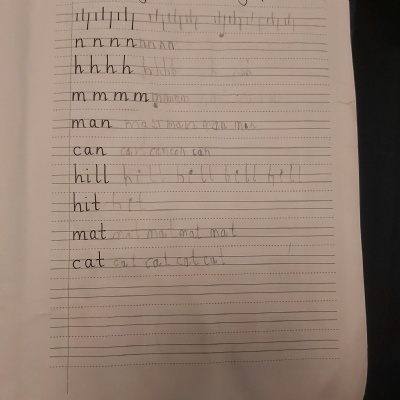 n n n n n n n n
h h h h h h h h
m m m m m m m m
man man man man
can can can can
hill hill hill hill hill
hit hit
mat mat mat mat mat
cat cat cat cat cat